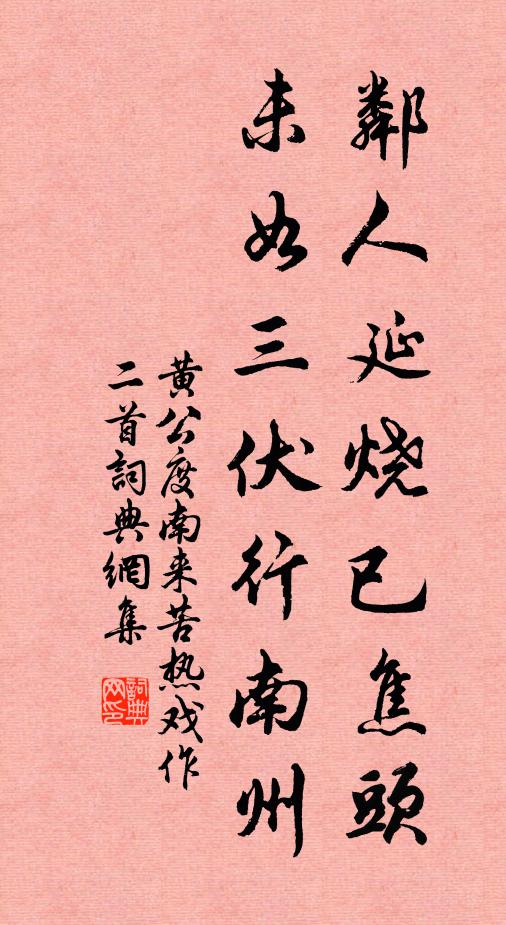 鄰人延烧已焦頭
未如三伏行南州
黄公度南来苦热戏作
二首詞典網集
詞典
网印